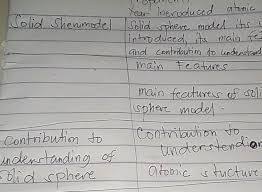 Year introduced atomic
Solid Sheremodel
Solid sphere model its
introduced, its main fea
and contribution to understand
main features
main features of soli
sphere model.
Contribution to
understanding of
solid sphere
Contribution to
understandion
atomic stucture